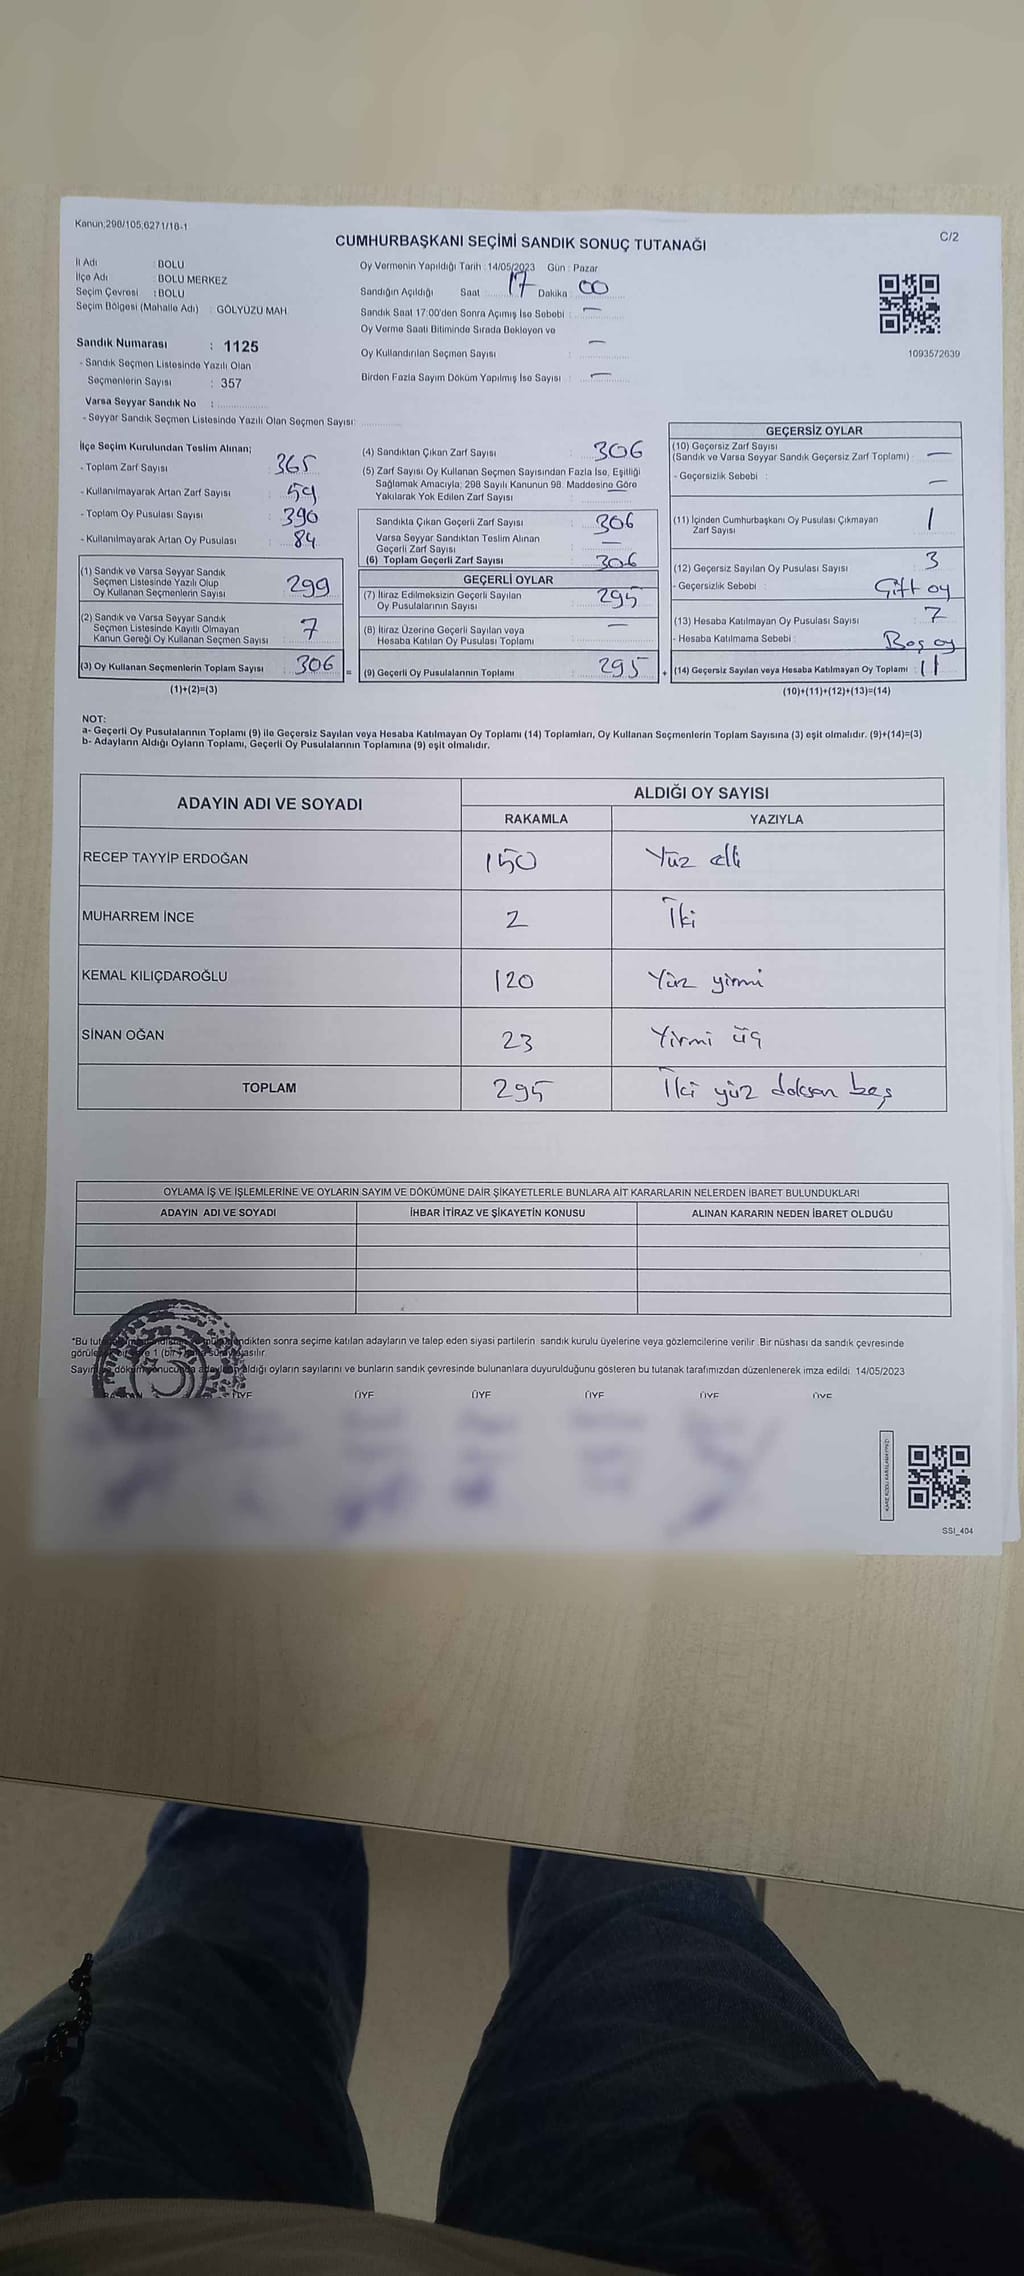 Kanun;298/105,6271/18-1
C/2
CUMHURBAŞKANI SEÇİMİ SANDIK SONUÇ TUTANAĞI
İl Adı : BOLU
İlçe Adı : BOLU MERKEZ
Seçim Çevresi : BOLU
Seçim Bölgesi (Mahalle Adı) : GÖLYÜZÜ MAH.
Sandık Numarası : 1125
- Sandık Seçmen Listesinde Yazılı Olan
Seçmenlerin Sayısı : 357
Varsa Seyyar Sandık No :
- Seyyar Sandık Seçmen Listesinde Yazılı Olan Seçmen Sayısı:
Oy Vermenin Yapıldığı Tarih : 14/05/2023 Gün : Pazar
Sandığın Açıldığı Saat : 17 Dakika : 00
Sandık Saat 17:00'den Sonra Açımış İse Sebebi : —
Oy Verme Saati Bitiminde Sırada Bekleyen ve
Oy Kullandırılan Seçmen Sayısı : —
Birden Fazla Sayım Döküm Yapılmış İse Sayısı : —
1093572639
İlçe Seçim Kurulundan Teslim Alınan;
- Toplam Zarf Sayısı : 365
- Kullanılmayarak Artan Zarf Sayısı : 59
- Toplam Oy Pusulası Sayısı : 390
- Kullanılmayarak Artan Oy Pusulası : 84
(1) Sandık ve Varsa Seyyar Sandık
Seçmen Listesinde Yazılı Olup
Oy Kullanan Seçmenlerin Sayısı : 299
(2) Sandık ve Varsa Seyyar Sandık
Seçmen Listesinde Kayıtlı Olmayan
Kanun Gereği Oy Kullanan Seçmen Sayısı : 7
(3) Oy Kullanan Seçmenlerin Toplam Sayısı : 306 =
(1)+(2)=(3)
(4) Sandıktan Çıkan Zarf Sayısı : 306
(5) Zarf Sayısı Oy Kullanan Seçmen Sayısından Fazla İse, Eşitliği
Sağlamak Amacıyla; 298 Sayılı Kanunun 98. Maddesine Göre
Yakılarak Yok Edilen Zarf Sayısı : —
Sandıkta Çıkan Geçerli Zarf Sayısı : 306
Varsa Seyyar Sandıktan Teslim Alınan
Geçerli Zarf Sayısı : —
(6) Toplam Geçerli Zarf Sayısı : 306
GEÇERLİ OYLAR
(7) İtiraz Edilmeksizin Geçerli Sayılan
Oy Pusulalarının Sayısı : 295
(8) İtiraz Üzerine Geçerli Sayılan veya
Hesaba Katılan Oy Pusulası Toplamı : —
(9) Geçerli Oy Pusulalarının Toplamı : 295 +
GEÇERSİZ OYLAR
(10) Geçersiz Zarf Sayısı
(Sandık ve Varsa Seyyar Sandık Geçersiz Zarf Toplamı) : —
- Geçersizlik Sebebi : —
(11) İçinden Cumhurbaşkanı Oy Pusulası Çıkmayan
Zarf Sayısı : 1
(12) Geçersiz Sayılan Oy Pusulası Sayısı : 3
- Geçersizlik Sebebi : Çift oy
(13) Hesaba Katılmayan Oy Pusulası Sayısı : 7
- Hesaba Katılmama Sebebi : Boş oy
(14) Geçersiz Sayılan veya Hesaba Katılmayan Oy Toplamı : 11
(10)+(11)+(12)+(13)=(14)
NOT:
a- Geçerli Oy Pusulalarının Toplamı (9) ile Geçersiz Sayılan veya Hesaba Katılmayan Oy Toplamı (14) Toplamları, Oy Kullanan Seçmenlerin Toplam Sayısına (3) eşit olmalıdır. (9)+(14)=(3)
b- Adayların Aldığı Oyların Toplamı, Geçerli Oy Pusulalarının Toplamına (9) eşit olmalıdır.
ADAYIN ADI VE SOYADI ALDIĞI OY SAYISI
RAKAMLA YAZIYLA
RECEP TAYYİP ERDOĞAN 150 Yüz elli
MUHARREM İNCE 2 İki
KEMAL KILIÇDAROĞLU 120 Yüz yirmi
SİNAN OĞAN 23 Yirmi üç
TOPLAM 295 İki yüz doksan beş
OYLAMA İŞ VE İŞLEMLERİNE VE OYLARIN SAYIM VE DÖKÜMÜNE DAİR ŞİKAYETLERLE BUNLARA AİT KARARLARIN NELERDEN İBARET BULUNDUKLARI
ADAYIN ADI VE SOYADI İHBAR İTİRAZ VE ŞİKAYETİN KONUSU ALINAN KARARIN NEDEN İBARET OLDUĞU
*Bu sonra seçime katılan adayların ve talep eden siyasi partilerin sandık kurulu üyelerine veya gözlemcilerine verilir. Bir nüshası da sandık çevresinde
1 (bir) asılır.
aldığı oyların sayılarını ve bunların sandık çevresinde bulunanlara duyurulduğunu gösteren bu tutanak tarafımızdan düzenlenerek imza edildi. 14/05/2023
BAŞKAN ÜYE ÜYE ÜYE ÜYE ÜYE ÜYE
SSI_404